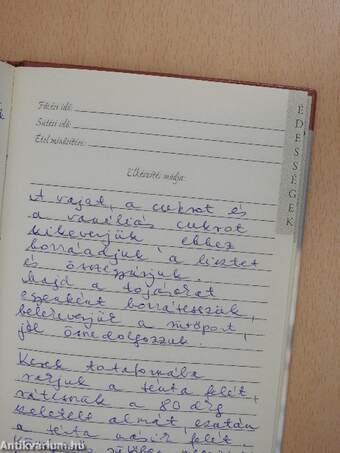 Főzési idő:
Sütési idő:
Étel minősítése:
ÉDESSÉGEK
Elkészítés módja:
A vajat, a cukrot és
a vaníliás cukrot
kikeverjük ehhez
hozzáadjuk a lisztet
és összegyúrjuk.
Majd a tojásokat
egyenként hozzátesszük,
belekeverjük a sütőport,
jól összedolgozzuk.
Kerek tortaformába
rakjuk a tészta felét,
rátesszük a 80 dkg
szeletelt almát, ezután
a tészta másik felét.
Antikvarium.hu